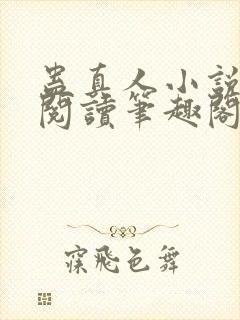 蠱真人小說
閱讀筆趣閣
寀飛色舞